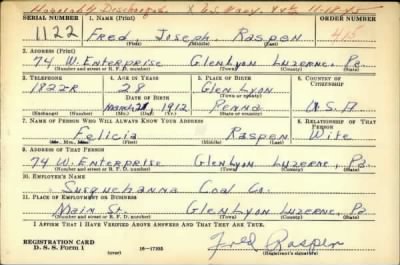 Honorably Discharged X U.S. Navy. 11-18-45
SERIAL NUMBER 1. NAME (Print) ORDER NUMBER
1122 Fred Joseph Raspen 415
(First) (Middle) (Last)
2. ADDRESS (Print)
74 W. Enterprise GlenLyon Luzerne, Pa.
(Number and street or R. F. D. number) (Town) (County) (State)
3. TELEPHONE 4. AGE IN YEARS 5. PLACE OF BIRTH 6. COUNTRY OF CITIZENSHIP
1822R 28 Glen Lyon
DATE OF BIRTH (Town or county)
March 1912 Penna U.S.A
(Exchange) (Number) (Mo.) (Day) (Yr.) (State or country)
7. NAME OF PERSON WHO WILL ALWAYS KNOW YOUR ADDRESS 8. RELATIONSHIP OF THAT PERSON
Felicia Raspen Wife
(Mr., Mrs., Miss) (First) (Middle) (Last)
9. ADDRESS OF THAT PERSON
74 W. Enterprise GlenLyon Luzerne, Pa
(Number and street or R. F. D. number) (Town) (County) (State)
10. EMPLOYER'S NAME
Susquehanna Coal Co.
11. PLACE OF EMPLOYMENT OR BUSINESS
Main St. GlenLyon Luzerne, Pa.
(Number and street or R. F. D. number) (Town) (County) (State)
I AFFIRM THAT I HAVE VERIFIED ABOVE ANSWERS AND THAT THEY ARE TRUE.
REGISTRATION CARD
D. S. S. Form 1 (over) 16—17105 Fred Raspen
(Registrant's signature)